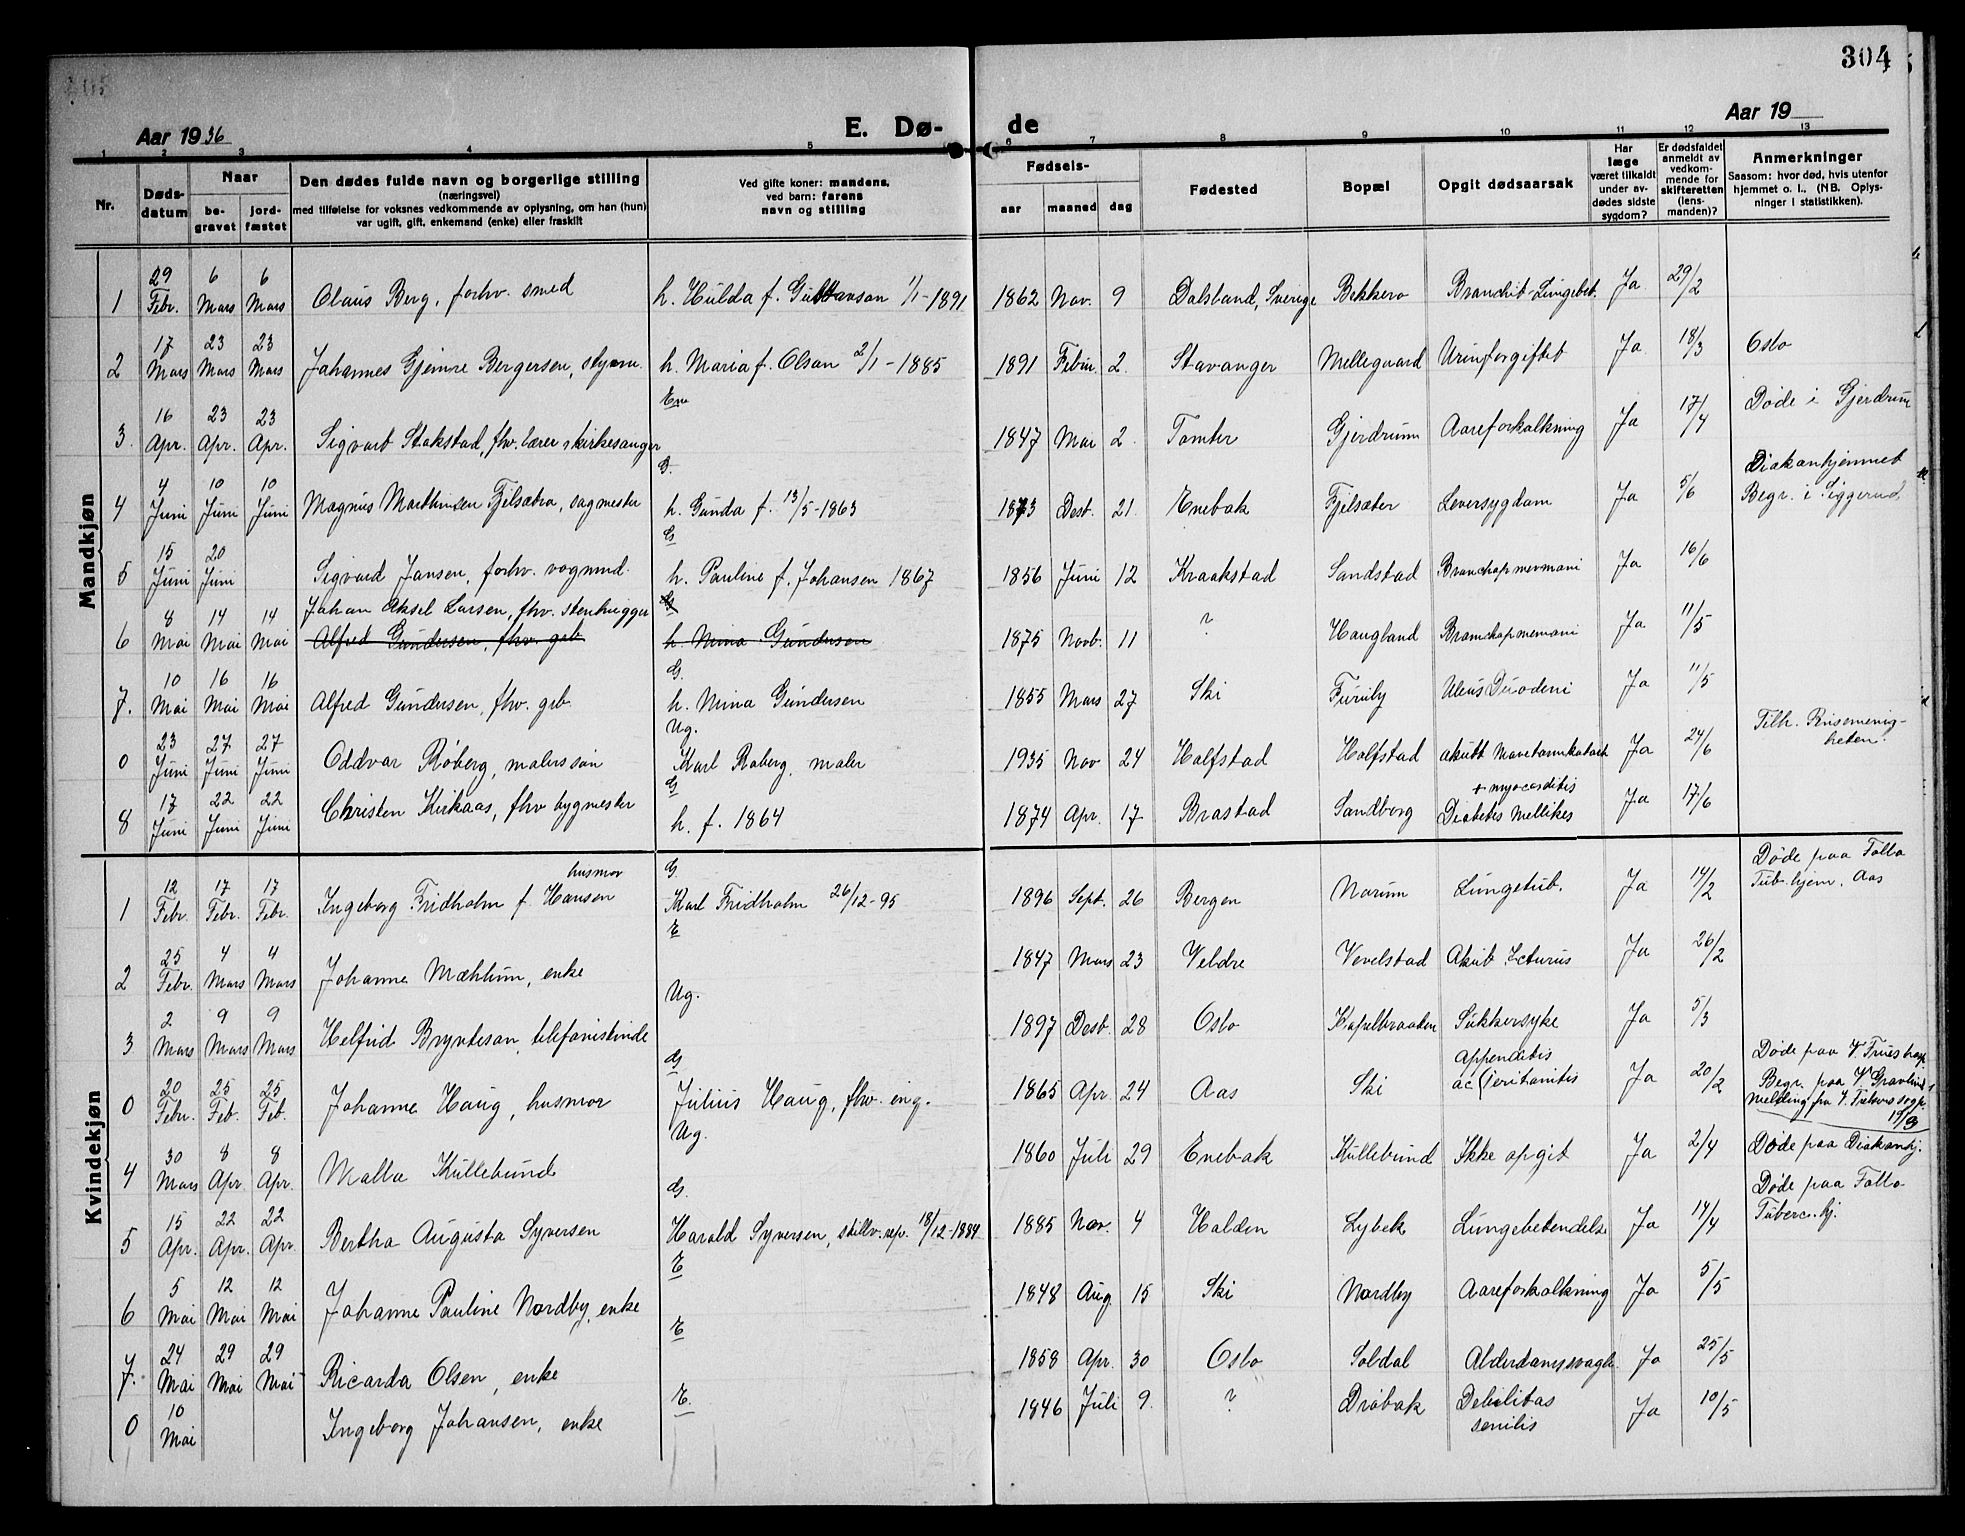 304
Aar 1936
E. Dø-
de
Aar 19
1 2 3 4 5 6 7 8 9 10 11 12 13
Nr.
Døds-
datum
Naar
be-
gravet
jord-
fæstet
Den dødes fulde navn og borgerlige stilling
(næringsvei)
med tilføielse for voksnes vedkommende av oplysning, om han (hun)
var ugift, gift, enkemand (enke) eller fraskilt
Ved gifte koner: mandens,
ved barn: farens
navn og stilling
Fødsels-
aar maaned dag
Fødested
Bopæl
Opgit dødsaarsak
Har
læge
været tilkaldt
under av-
dødes sidste
sygdom?
Er dødsfaldet
anmeldt av
vedkom-
mende for
skifteretten
(lens-
manden)?
Anmerkninger
Saasom: hvor død, hvis utenfor
hjemmet o. l., (NB. Oplys-
ninger i statistikken).
Mandkjøn
1 29 Febr. 6 Mars 6 Mars Olaus Berg, forhv. smed h. Hulda f. Gustavson 1/1-1891 1862 Nov. 9 Dalsland, Sverige Bekkero Bronchit-Lungebet. Ja 29/2
2 17 Mars 23 Mars 23 Mars Johannes Gjemre Bergersen, styrm. h. Maria f. Olson 2/1-1885 1891 Febru. 2 Stavanger Mellegaard Urinforgiftet Ja 18/3 Oslo
Em
3. 16 Apr. 23 Apr. 23 Apr. Sigvart Stokstad, fhv. lærer & kirkesanger 1847 Mai 2 Tomter Gjerdrum Aareforkalkning Ja 17/4 Døde i Gjerdrum
G.
4 4 Juni 10 Juni 10 Juni Magnus Marthinsen Fjelsætra, sagmester h. Gunda f. 13/5-1863 1873 Dest. 21 Enebak Fjelsæter Leversygdom Ja 5/6 Diakonhjemmet
Begr. i Siggerud.
G
5 15 Juni 20 Juni Sigvard Jansen, forhv. vognmd. h. Pauline f. Johansen 1867 1856 Juni 12 Kraakstad Sandstad Bronchopnevmoni Ja 16/6
G
Johan Aksel Larsen, fhv. stenhugger
6 8 Mai 14 Mai 14 Mai Alfred Gundersen, fhv. grb. h. Mina Gundersen 1875 Novb. 11 ? Haugland Bronchopnevmoni Ja 11/5
G.
7. 10 Mai 16 Mai 16 Mai Alfred Gundersen, fhv. grb. h. Mina Gundersen 1855 Mars 27 Ski Furuly Ulcus Duodeni Ja 11/5
Ug.
0 23 Juni 27 Juni 27 Juni Oddvar Røberg, malerssøn Karl Røberg, maler 1935 Nov 24 Holfstad Holfstad akutt Mavetarmkatarh Ja 24/6 Tilh. Frismenig-
heten.
G
8 17 Juni 22 Juni 22 Juni Christen Kirkaas, fhv bygmester h. f. 1864 1874 Apr. 17 Brastad Sandberg + myocarditis
Diabetes Mellikes Ja 17/6
Kvindekjøn
G
husmor
1 12 Febr. 17 Febr. 17 Febr Ingeborg Fridholm f. Hansen Karl Fridholm 26/12-95 1896 Sept. 26 Bergen Norum Lungetub. Ja 14/2 Døde paa Follo
Tub.hjem, Aas
E
2 25 Febr. 4 Mars 4 Mars Johanne Mæhlum, enke 1847 Mars 23 Veldre Vevelstad Akut Icturus Ja 26/2
Ug.
3 2 Mars 9 Mars 9 Mars Helfrid Bryntesan, telefonistinde 1897 Dest. 28 Oslo Kapelbraaten Sukkersyke Ja 5/3
G
0 20 Febr. 25 Feb. 25 Feb. Johanne Haug, husmor Julius Haug, fhv. eng. 1865 Apr 24 Aas Ski Appenditis
ac (eritonitis Ja 20/2 Døde paa V.
Begr. paa V. Gravlund
Melding fra V.
19/3
Ug.
4 30 Mars 8 Apr. 8 Apr. Malla Kullebund 1860 Juli 29 Enebak Kullebund Ikke opgit Ja 2/4 Døde paa Diakonhj.
G.
5 15 Apr. 22 Apr. 22 Apr. Bertha Augusta Syversen Harald Syversen, stillv.rep. 18/12-1884 1885 Nov. 4 Halden Lybek Lungebetendelse Ja 14/4 Døde paa Follo
Tuberc.hj.
E
6 5 Mai 12 Mai 12 Mai Johanne Pauline Nordby, enke 1848 Aug 15 Ski Nordby Aareforkalkning Ja 5/5
E
7. 24 Mai 29 Mai 29 Mai Ricarda Olsen, enke 1858 Apr. 30 Oslo Soldal Alderdomssvagh. Ja 25/5
E.
0 10 Mai Ingeborg Johansen, enke 1846 Juli 9. ? Drøbak Debilitas
senilis Ja 10/5